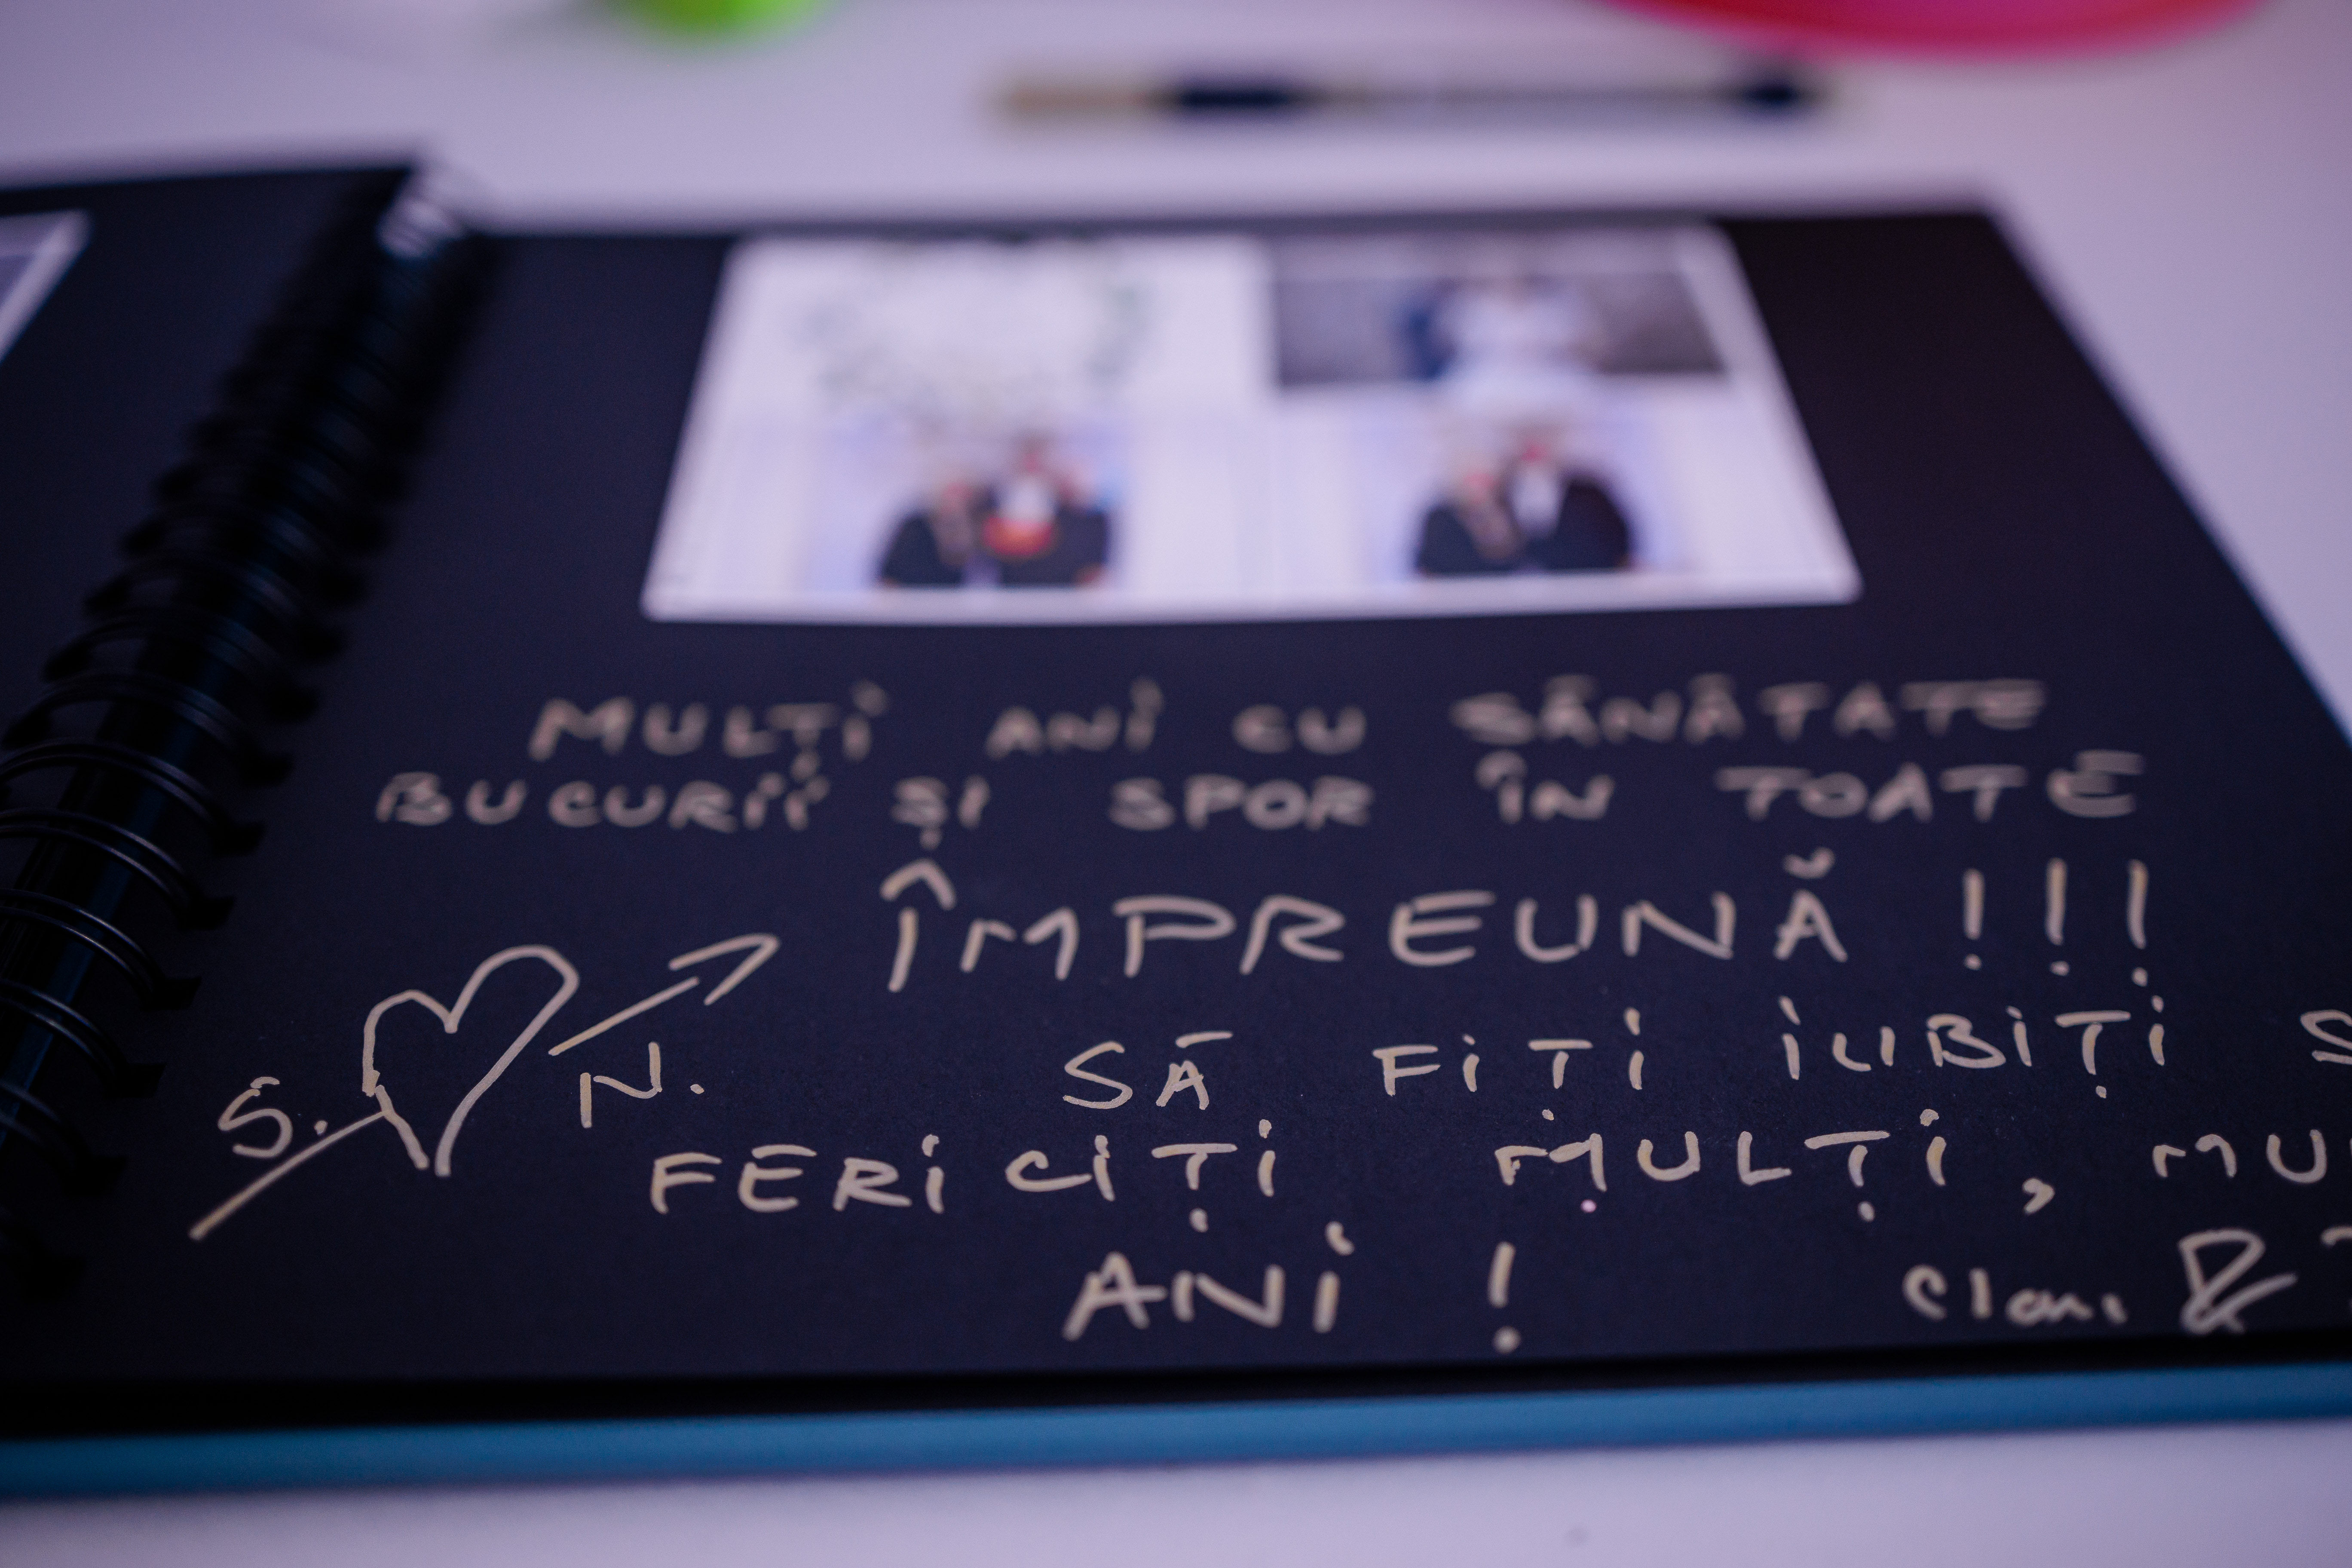 MULȚI ANI CU SĂNĂTATE
BUCURII ȘI SPOR ÎN TOATE
ÎMPREUNĂ !!!
S. N.
SĂ FIȚI IUBIȚI
FERICIȚI MULȚI,
ANI !
&